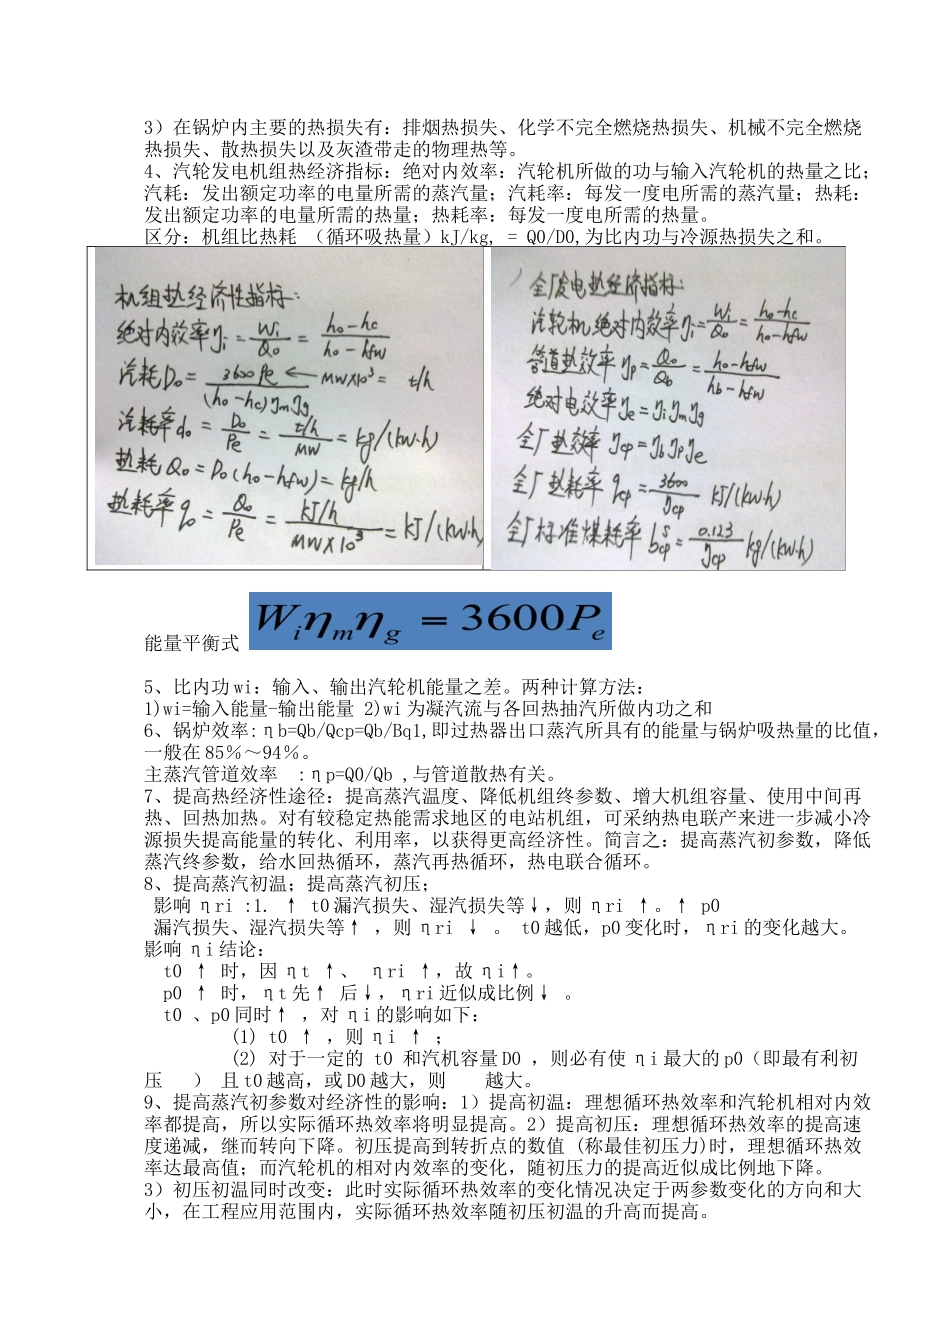 3）在锅炉内主要的热损失有：排烟热损失、化学不完全燃烧热损失、机械不完全燃烧
热损失、散热损失以及灰渣带走的物理热等。
4、汽轮发电机组热经济指标：绝对内效率：汽轮机所做的功与输入汽轮机的热量之比；
汽耗：发出额定功率的电量所需的蒸汽量；汽耗率：每发一度电所需的蒸汽量；热耗：
发出额定功率的电量所需的热量；热耗率：每发一度电所需的热量。
区分：机组比热耗 （循环吸热量）kJ/kg, = Q0/D0,为比内功与冷源热损失之和。
机组热经济性指标：
绝对内效率ηi = Wi/Q0 = (h0-hc)/(h0-hfw)
汽耗D0 = 3600Pe/((h0-hc)ηmηg) ← MW×10³ = t/h
汽耗率d0 = D0/Pe = (t/h)/MW = kg/(kW·h)
热耗Q0 = D0(h0-hfw) = kg/h
热耗率q0 = Q0/Pe = (kJ/h)/(MW×10³) = kJ/(kW·h)
全厂发电热经济指标：
汽轮机绝对内效率ηi = Wi/Q0 = (h0-hc)/(h0-hfw)
管道热效率ηp = Q0/Qb = (h0-hfw)/(hb-hfw)
绝对电效率ηe = ηiηmηg
全厂热效率 ηcp = ηbηpηe
全厂热耗率 qcp = 3600/ηcp kJ/(kW·h)
全厂标准煤耗率 b^s_cp = 0.123/ηcp kg/(kW·h)
能量平衡式 Wiηmηg = 3600Pe
5、比内功 wi：输入、输出汽轮机能量之差。两种计算方法：
1)wi=输入能量-输出能量 2)wi 为凝汽流与各回热抽汽所做内功之和
6、锅炉效率：ηb=Qb/Qcp=Qb/Bq1,即过热器出口蒸汽所具有的能量与锅炉吸热量的比值，
一般在 85％～94％。
主蒸汽管道效率 :ηp=Q0/Qb ,与管道散热有关。
7、提高热经济性途径：提高蒸汽温度、降低机组终参数、增大机组容量、使用中间再
热、回热加热。对有较稳定热能需求地区的电站机组，可采纳热电联产来进一步减小冷
源损失提高能量的转化、利用率，以获得更高经济性。简言之：提高蒸汽初参数，降低
蒸汽终参数，给水回热循环，蒸汽再热循环，热电联合循环。
8、提高蒸汽初温；提高蒸汽初压；
影响 ηri :1. ↑ t0 漏汽损失、湿汽损失等↓，则 ηri ↑。↑ p0
漏汽损失、湿汽损失等↑ ，则 ηri ↓ 。 t0 越低，p0 变化时，ηri 的变化越大。
影响 ηi 结论：
t0 ↑ 时，因 ηt ↑、 ηri ↑，故 ηi↑。
p0 ↑ 时，ηt 先↑ 后↓，ηri 近似成比例↓ 。
t0 、p0 同时↑ ，对 ηi 的影响如下：
(1) t0 ↑ ，则 ηi ↑ ；
(2) 对于一定的 t0 和汽机容量 D0 ，则必有使 ηi 最大的 p0（即最有利初
压 ） 且 t0 越高，或 D0 越大，则 越大。
9、提高蒸汽初参数对经济性的影响：1）提高初温：理想循环热效率和汽轮机相对内效
率都提高，所以实际循环热效率将明显提高。2）提高初压：理想循环热效率的提高速
度递减，继而转向下降。初压提高到转折点的数值 (称最佳初压力)时，理想循环热效
率达最高值；而汽轮机的相对内效率的变化，随初压力的提高近似成比例地下降。
3）初压初温同时改变：此时实际循环热效率的变化情况决定于两参数变化的方向和大
小，在工程应用范围内，实际循环热效率随初压初温的升高而提高。